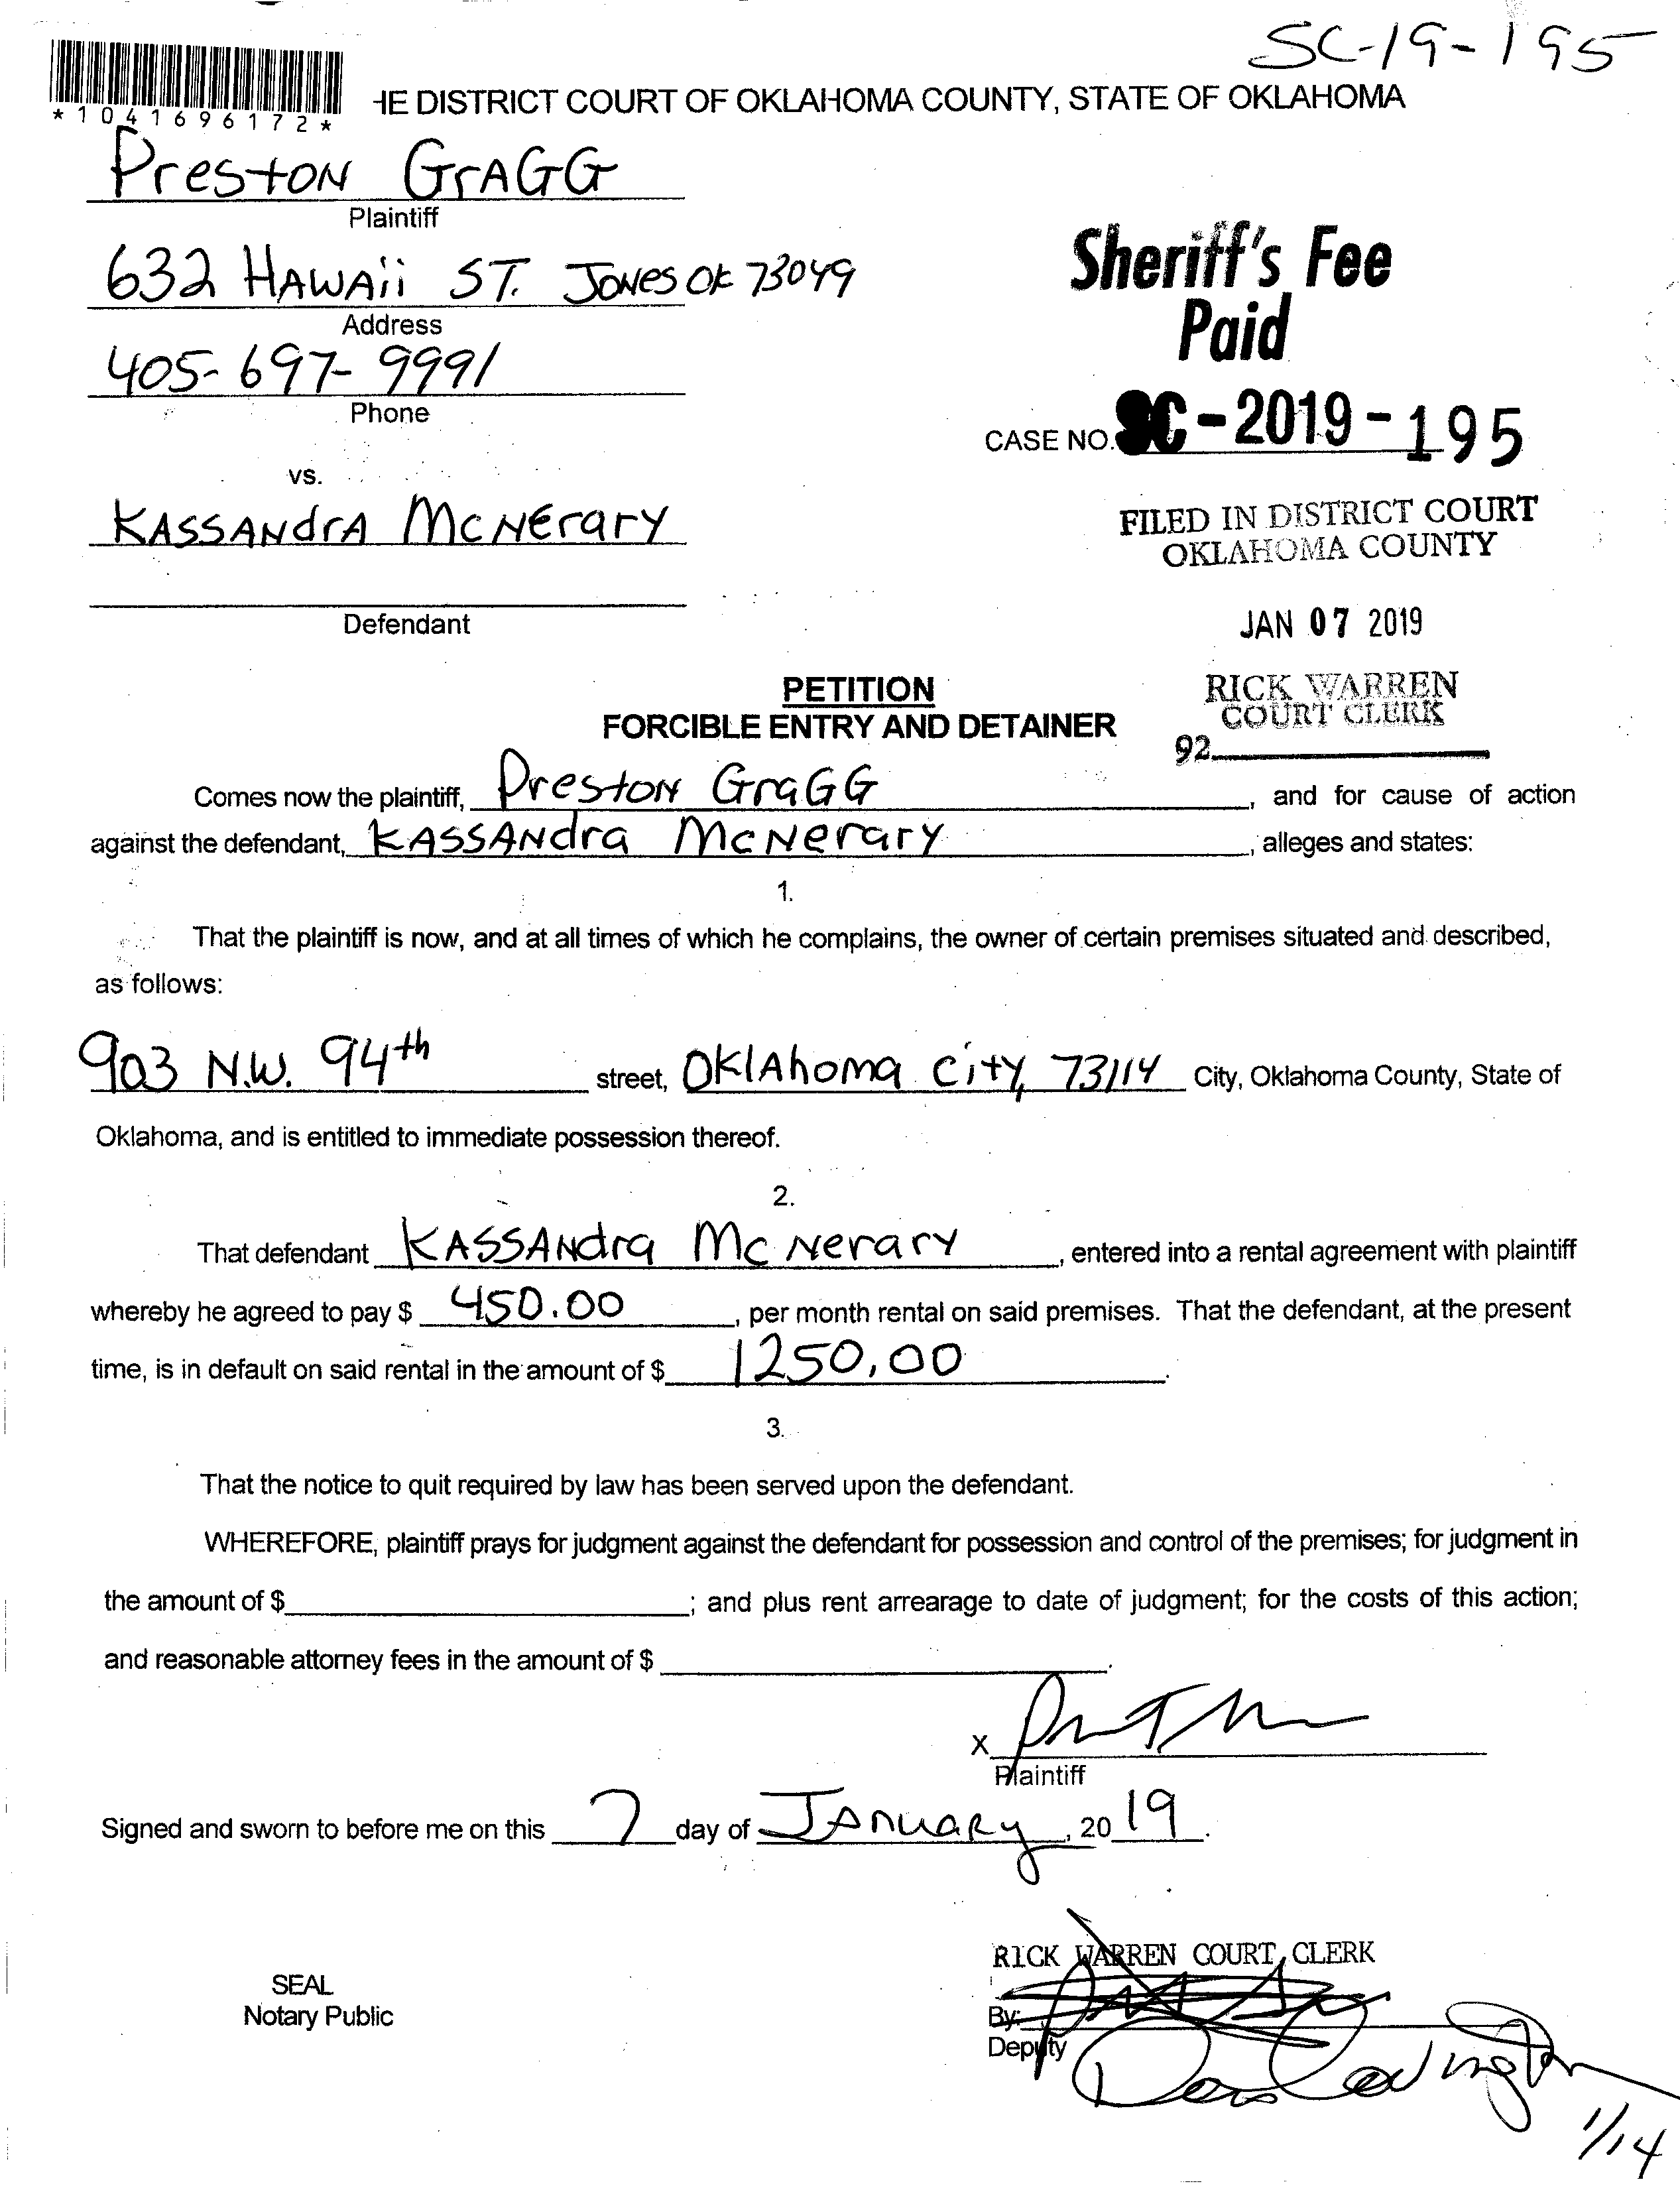 SC-19-195
*1041696172*
HE DISTRICT COURT OF OKLAHOMA COUNTY, STATE OF OKLAHOMA
Preston Gragg
Plaintiff
632 Hawaii ST. Jones OK 73049
Address
405-697-9991
Phone
Sheriff's Fee
Paid
CASE NO. SC-2019-195
vs.
Kassandra McNerary
Defendant
FILED IN DISTRICT COURT
OKLAHOMA COUNTY
JAN 07 2019
RICK WARREN
COURT CLERK
92
PETITION
FORCIBLE ENTRY AND DETAINER
Comes now the plaintiff, Preston Gragg, and for cause of action
against the defendant, Kassandra McNerary, alleges and states:
1.
That the plaintiff is now, and at all times of which he complains, the owner of certain premises situated and described,
as follows:
903 N.W. 94th street, Oklahoma City, 73114 City, Oklahoma County, State of
Oklahoma, and is entitled to immediate possession thereof.
2.
That defendant Kassandra McNerary, entered into a rental agreement with plaintiff
whereby he agreed to pay $ 450.00, per month rental on said premises. That the defendant, at the present
time, is in default on said rental in the amount of $ 1250.00.
3.
That the notice to quit required by law has been served upon the defendant.
WHEREFORE, plaintiff prays for judgment against the defendant for possession and control of the premises; for judgment in
the amount of $ ; and plus rent arrearage to date of judgment; for the costs of this action;
and reasonable attorney fees in the amount of $ .
X
Plaintiff
Signed and sworn to before me on this 7 day of January, 2019.
SEAL
Notary Public
RICK WARREN COURT CLERK
By:
Deputy
1/14